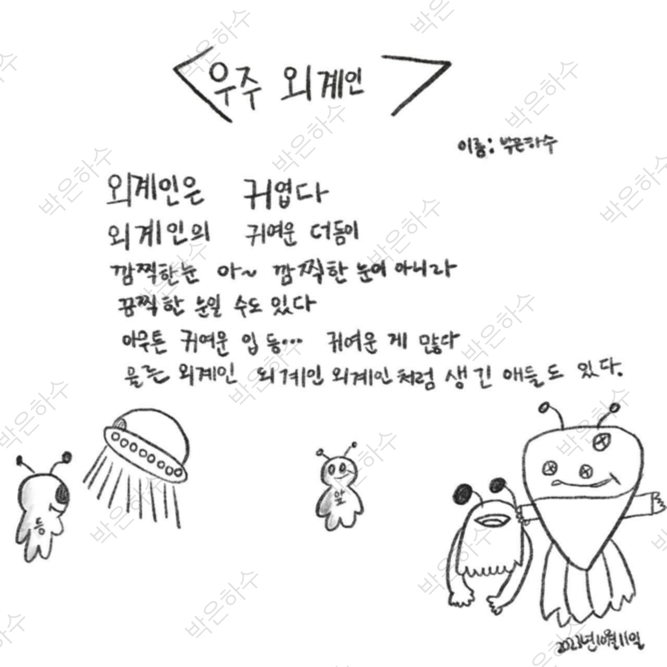 <우주 외계인>
이름: 박은하수
외계인은 귀엽다
외계인의 귀여운 더듬이
깜찍한눈 아~ 깜찍한 눈이 아니라
끔찍한 눈일 수도 있다
아무튼 귀여운 입 등... 귀여운 게 많다
물론 외계인 외계인 외계인처럼 생긴 애들도 있다.
등
앞
2023년10월11일
박은하수